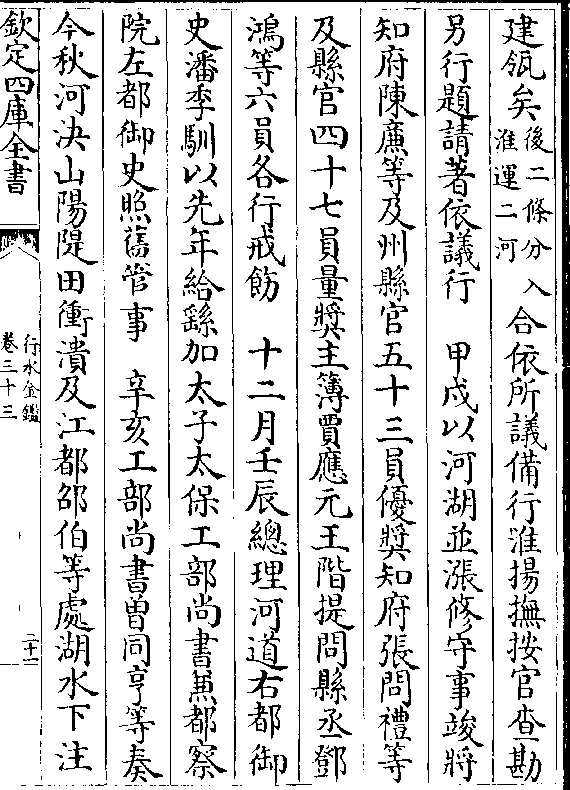 建瓴矣後二條分入
淮運二河
合依所議備行淮揚撫按官查勘
另行題請著依議行　甲戌以河湖並漲修守事竣將
知府陳薦等及州縣官五十三員優奬知府張問禮等
及縣官四十七員量奬主簿賈應元王階提問縣丞鄧
鴻等六員各行戒飭　十二月壬辰總理河道右都御
史潘季馴以先年給繇加太子太保工部尚書兼都察
院左都御史照舊管事　辛亥工部尚書曾同亨等奏
今秋河決山陽隄田衝潰及江都邵伯等處湖水下注
欽定四庫全書
行水金鑑
卷三十三
二十一